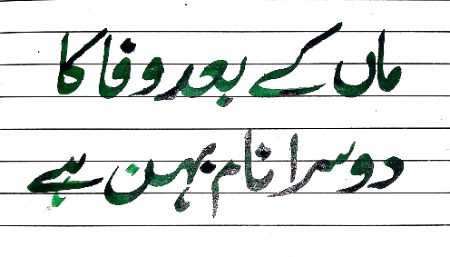 ماں کے بعد وفا کا
دوسرا نام بہن ہے